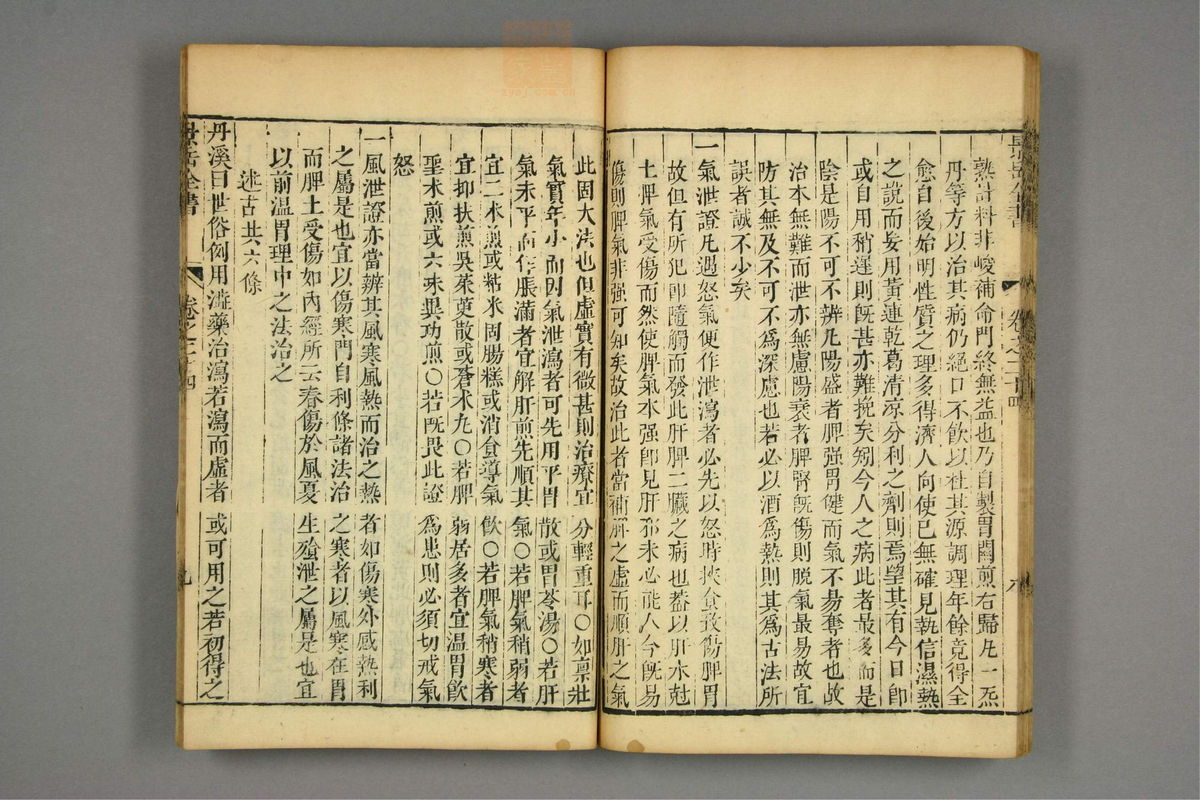 熟計料非峻補命門終無益也乃自製胃關煎右歸丸一炁
丹等方以治其病仍絕口不飲以杜其源調理年餘竟得全
愈自後始明性質之理多得濟人向使己無確見執信濕熱
之說而妄用黃連乾葛清凉分利之劑則焉望其有今日即
或自用稍遲則旣甚亦難挽矣矧今人之病此者最多而是
陰是陽不可不辨凡陽盛者脾强胃健而氣不昜奪者也故
治本無難而泄亦無慮陽衰者脾腎旣傷則脱氣最易故宜
防其無及不可不爲深慮也若必以酒爲熱則其爲古法所
誤者誠不少矣
一氣泄證凡遇怒氣便作泄瀉者必先以怒時挾食致傷脾胃
故但有所犯即隨觸而發此肝脾二臟之病也蓋以肝木尅
土脾氣受傷而然使脾氣本强即見肝邪未必能入今旣易
傷則脾氣非强可知矣故治此者當補脾之虛而順肝之氣
此固大法也但虛實有微甚則治療宜分輕重耳○如禀壯
氣實年小而因氣泄瀉者可先用平胃散或胃苓湯○若肝
氣未平而作脹滿者宜解肝煎先順其氣○若脾氣稍弱者
宜二术煎或粘米固腸糕或消食導氣飲○若脾氣稍寒者
宜抑扶煎吳茱萸散或蒼术丸○若脾弱居多者宜温胃飲
聖术煎或六味異功煎○若旣畏此證爲患則必須切戒氣
怒
一風泄證亦當辨其風寒風熱而治之熱者如傷寒外感熱利
之屬是也宜以傷寒門自利條諸法治之寒者以風寒在胃
而脾土受傷如內經所云春傷於風夏生飱泄之屬是也宜
以前温胃理中之法治之
述古共六條
丹溪曰世俗例用澁藥治瀉若瀉而虛者或可用之若初得之
景岳全書
卷之二十四
九